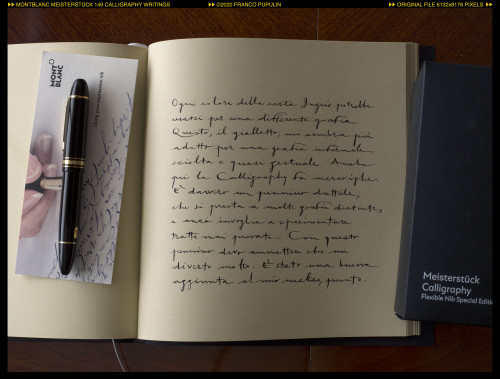 MONTBLANC MEISTERSTÜCK 149 CALLIGRAPHY WRITINGS ©2020 FRANCO PUPULIN ORIGINAL FILE 6132x8176 PIXELS
MONT
BLANC
Ogni colore della carta Ingres potrebbe
usarsi per una differente grafia.
Questo, il gialletto, mi sembra più
adatto per una grafia informale,
sciolta e quasi gestuale. Anche
qui la Calligraphy fa meraviglie.
È davvero un pennino duttile,
che si presta a molte grafie distinte,
e anzi invoglia a sperimentare
tratti mai provati. Con questo
pennino devo ammettere che mi
diverto molto. È stato una buona
aggiunta al mio punto.
Meisterstück
Calligraphy
Flexible Nib Special Editio